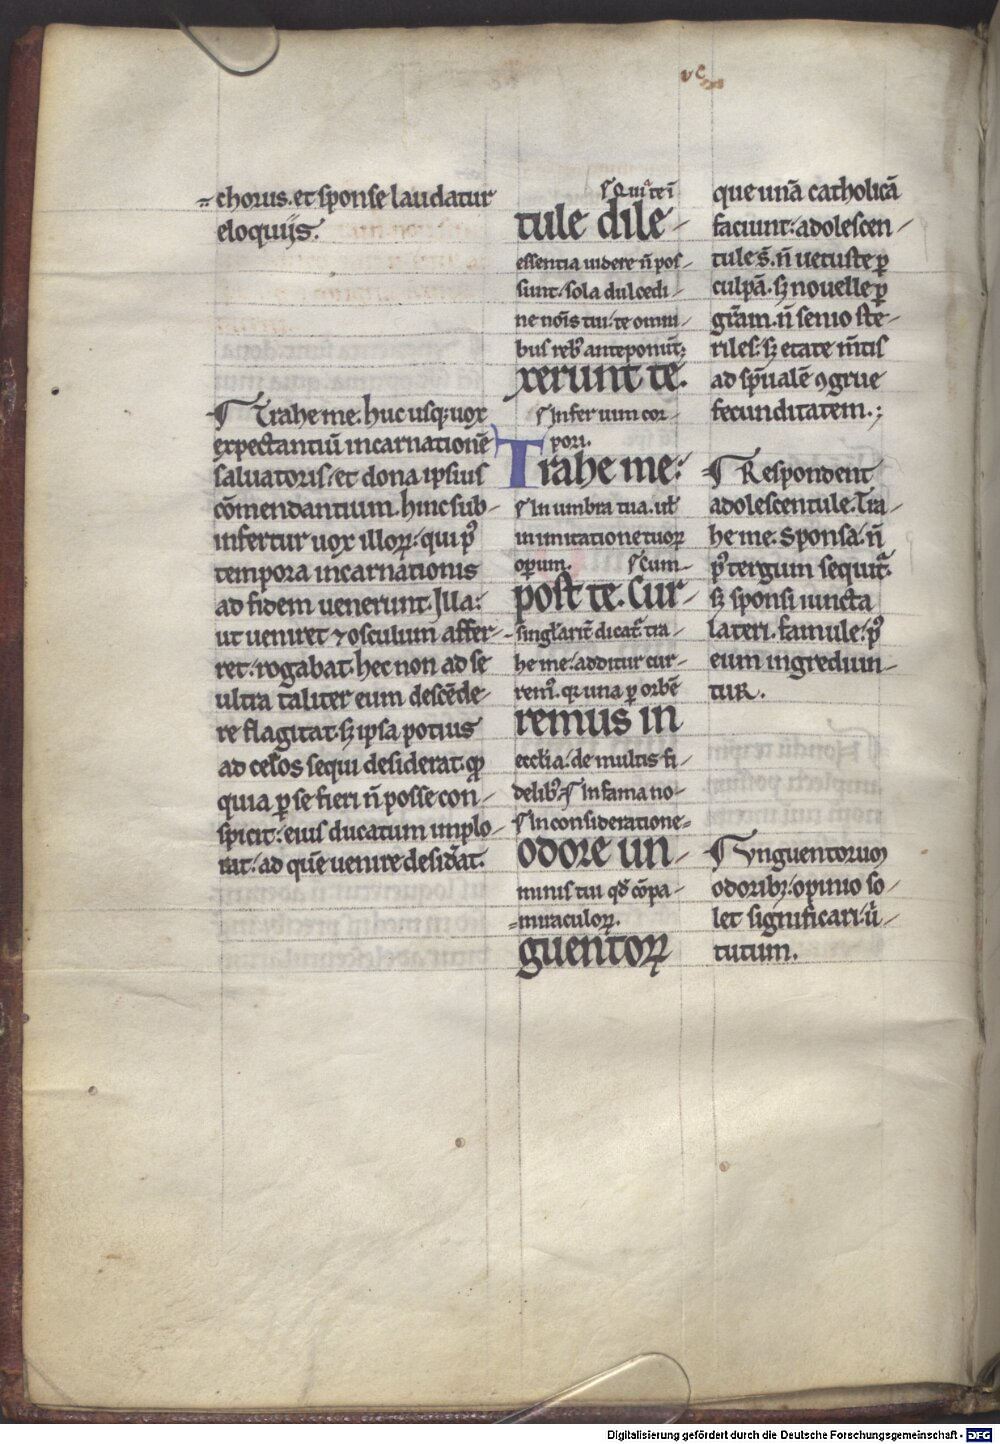 chorus. et sponse laudatur
eloquijs.
¶ Trahe me. huc usq; uox
expectantiū incarnationē
saluatoris. et dona ipsius
cōmendantium. hinc sub-
infertur uox illoꝝ. qui pꝰ
tempora incarnationis
ad fidem uenerunt. Illa:
ut ueniret ⁊ osculum affer-
ret. rogabat. hec non ad se
ultra taliter eum descēde-
re flagitat. sꝫ ipsa potius
ad celsos sequi desiderat. qꝫ
quia ꝑ se fieri n̄ posse con-
spicit. eius ducatum implo-
rat. ad quē uenire desid̓at.
¶ Qui te ī
tule dile-
essentia uidere n̄ pos-
sunt. sola dulcedi-
ne nōis tui. te omni-
bus rebꝰ anteponūt.
xerunt te.
¶ Infer uim cor-
pori.
Trahe me:
¶ In umbra tua. ul̓
in imitatione tuoꝝ
oꝑum. ¶ Cum
post te. Cur-
singl̓arit̓ dicat̓. tra-
he me. additur cur-
remꝰ. qꝛ una ꝑ orbē
remus in
eccl̓ia. de multis fi-
delibꝰ. ¶ In fama no-
¶ In consideratione
odore un-
minis tui qd̓ cōpa-
miraculoꝝ.
guentoꝝ
que unā catholicā
faciunt. adolescen-
tule s̄. n̄ uetuste ꝑ
culpā. sꝫ nouelle ꝑ
gr̄am. n̄ senio ste-
riles. sꝫ etate m̄tis
ad sp̄ualē ꝯgrue
fecunditatem.
¶ Respondent
adolescentule. Tra-
he me. Sponsa. n̄
pꝰ tergum sequit̓.
sꝫ sponsi iuncta
lateri. famule. pꝰ
eum ingrediun-
tur.
¶ Vnguentorum
odoribꝫ. opinio so-
let significari. ūi-
tutum.
Digitalisierung gefördert durch die Deutsche Forschungsgemeinschaft - DFG